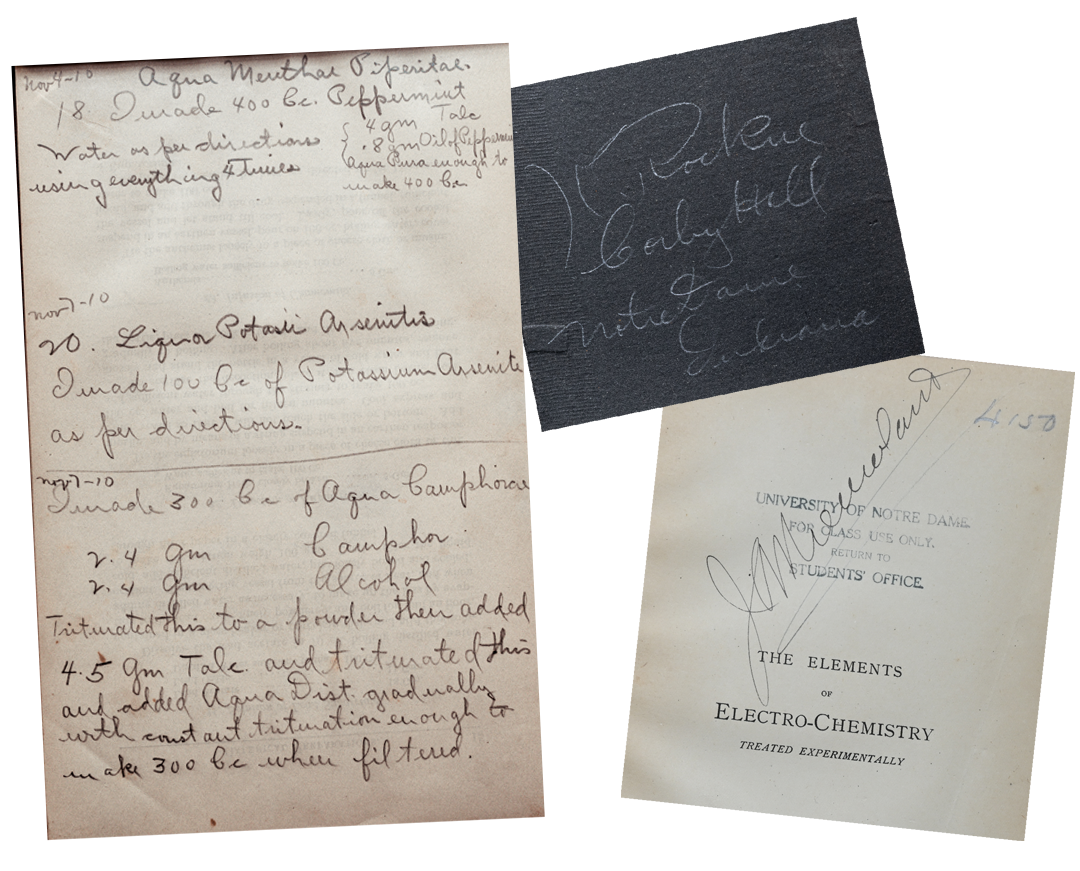 Nov 4-10 Aqua Menthae Piperitae.
18. I made 400 Cc. Peppermint
Water as per directions
using everything 4 Times
4 gm Talc
.8 gm Oil of Peppermint
Aqua Pura enough to
make 400 Cc.
Nov 7-10
20. Liquor Potasii Arsenitis
I made 100 Cc of Potassium Arsenite
as per directions.
Nov 7-10
I made 300 Cc of Aqua Camphorae
2.4 gm Camphor.
2.4 gm Alcohol
Triturated this to a powder then added
4.5 Gm Talc. and triturated this
and added Aqua Dist. gradually
with constant trituration enough to
make 300 Cc when filtered.
K. Rockne
Corby Hall
Notre Dame
Indiana
4150
UNIVERSITY OF NOTRE DAME.
FOR CLASS USE ONLY.
RETURN TO
STUDENTS' OFFICE.
THE ELEMENTS
OF
ELECTRO-CHEMISTRY
TREATED EXPERIMENTALLY